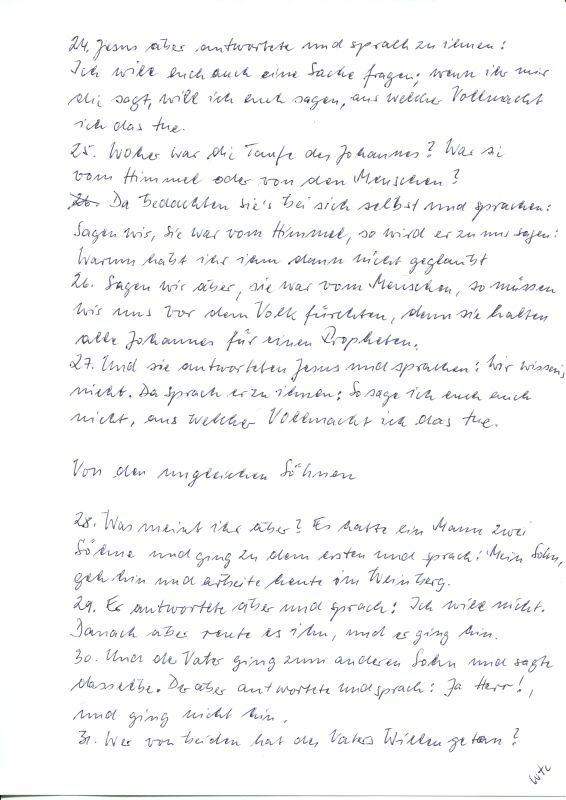 24. Jesus aber antwortete und sprach zu ihnen:
Ich will euch auch eine Sache fragen; wenn ihr mir
die sagt, will ich euch sagen, aus welcher Vollmacht
ich das tue.
25. Woher war die Taufe des Johannes? War sie
vom Himmel oder von den Menschen?
Da bedachten sie's bei sich selbst und sprachen:
Sagen wir, sie war vom Himmel, so wird er zu uns sagen:
Warum habt ihr ihm dann nicht geglaubt
26. Sagen wir aber, sie war vom Menschen, so müssen
wir uns vor dem Volk fürchten, denn sie halten
alle Johannes für einen Propheten.
27. Und sie antworteten Jesus und sprachen: Wir wissens
nicht. Da sprach er zu ihnen: So sage ich euch auch
nicht, aus welcher Vollmacht ich das tue.
Von den ungleichen Söhnen
28. Was meint ihr aber? Es hatte ein Mann zwei
Söhne und ging zu dem ersten und sprach: Mein Sohn,
geh hin und arbeite heute im Weinberg.
29. Er antwortete aber und sprach: Ich will nicht.
Danach aber reute es ihn, und er ging hin.
30. Und der Vater ging zum anderen Sohn und sagte
dasselbe. Der aber antwortete und sprach: Ja Herr!,
und ging nicht hin.
31. Wer von beiden hat des Vaters Willen getan?